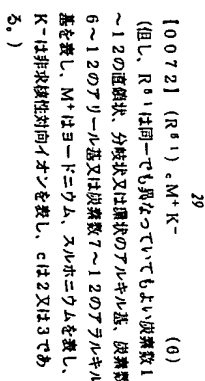 29
【0072】 (R⁵¹)cM⁺K⁻ (6)
(但し、R⁵¹は同一でも異なっていてもよい炭素数1
～12の直鎖状、分岐状又は環状のアルキル基、炭素数
6～12のアリール基又は炭素数7～12のアラルキル
基を表し、M⁺はヨードニウム、スルホニウムを表し、
K⁻は非求核性対向イオンを表し、cは2又は3であ
る。)